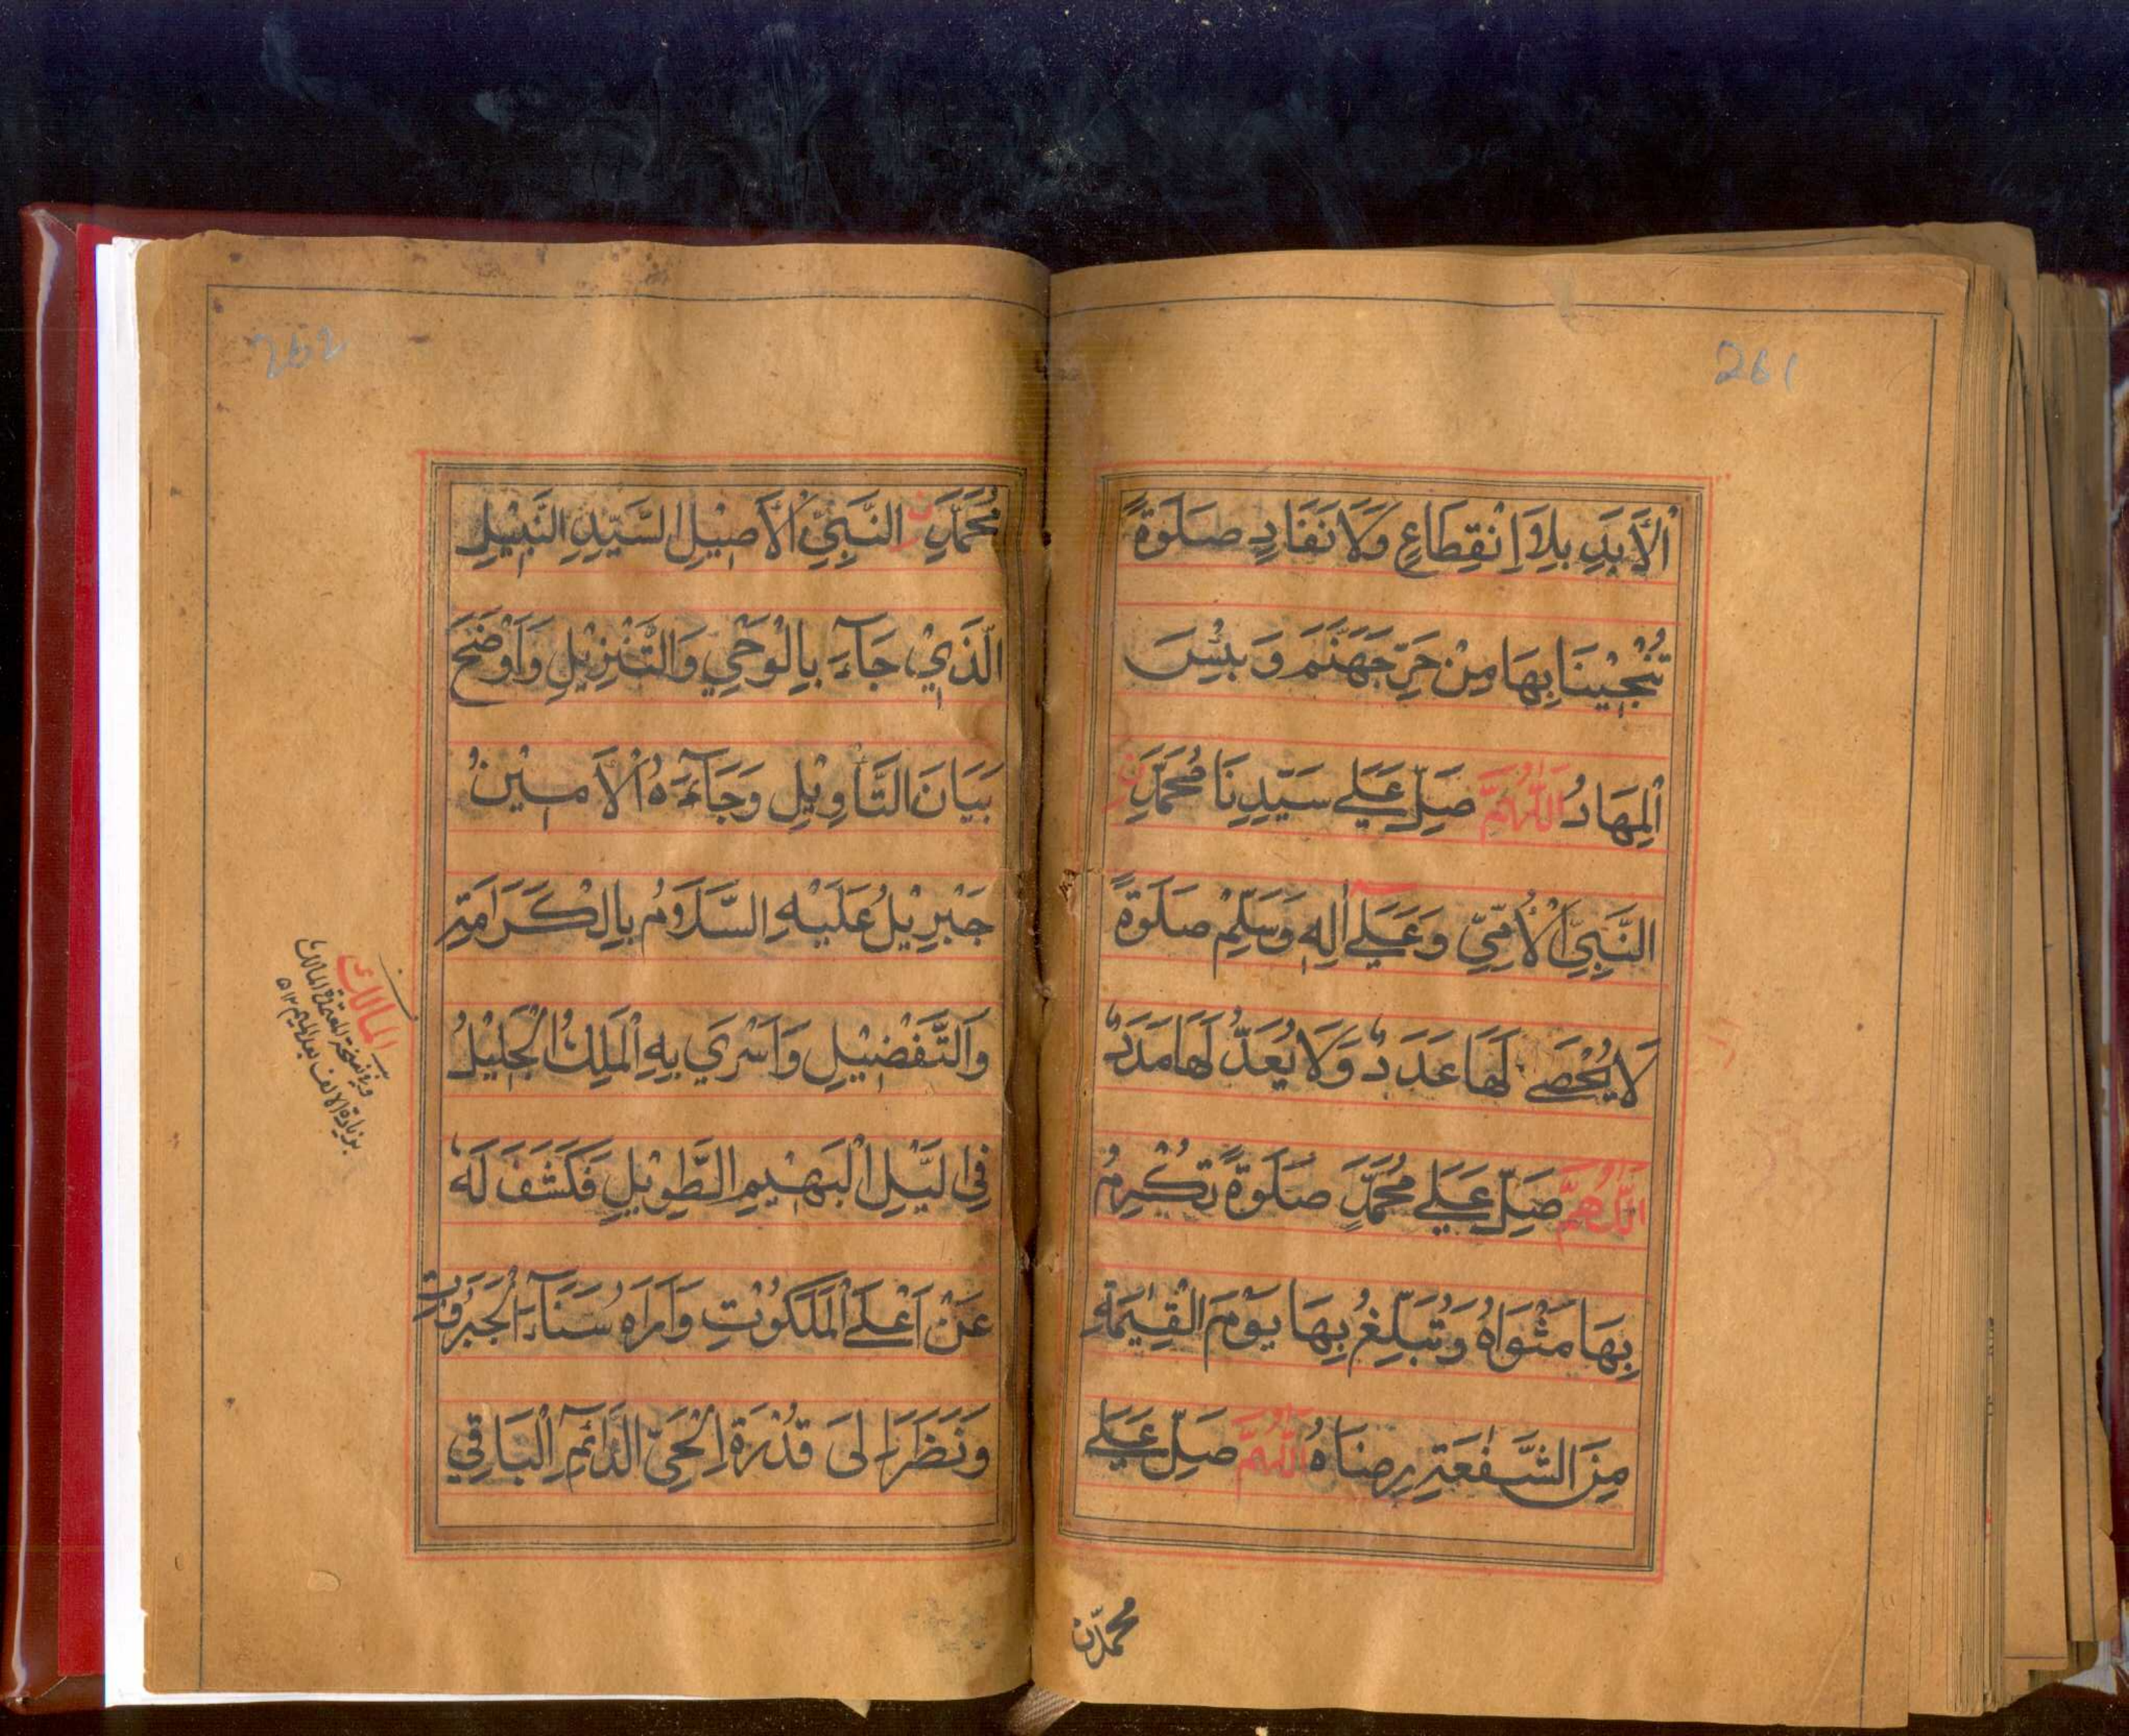 261
اَلْاَبَدِ بِلَا اِنْقِطَاعٍ وَّلَا نَفَادٍ صَلٰوةً
تُنْجِيْنَا بِهَا مِنْ حَرِّ جَهَنَّمَ وَ بِئْسَ
الْمِهَادُ اَللّٰهُمَّ صَلِّ عَلٰے سَيِّدِنَا مُحَمَّدِ نِ
النَّبِيِّ الْاُمِّيِّ وَعَلٰے اٰلِهٖ وَسَلِّمْ صَلٰوةً
لَا يُحْصٰے لَهَا عَدَدٌ وَّلَا يُعَدُّ لَهَا مَدَدٌ
اَللّٰهُمَّ صَلِّ عَلٰے مُحَمَّدٍ صَلٰوةً تُكْرِمُ
بِهَا مَثْوَاهُ وَتُبَلِّغُ بِهَا يَوْمَ الْقِيٰمَةِ
مِنَ الشَّفٰعَةِ رِضَاهُ اَللّٰهُمَّ صَلِّ عَلٰے
محمدن
262
مُحَمَّدِ نِ النَّبِيِّ الْاَصِيْلِ السَّيِّدِ النَّبِيْلِ
الَّذِيْ جَآءَ بِالْوَحْيِ وَالتَّنْزِيْلِ وَاَوْضَحَ
بَيَانَ التَّاْوِيْلِ وَجَآءَهُ الْاَمِيْنُ
جَبْرِيْلُ عَلَيْهِ السَّلَامُ بِالْكَرَامَةِ
وَالتَّفْضِيْلِ وَاَسْرٰي بِهِ الْمَلِكُ الْجَلِيْلُ
فِي الَّيْلِ الْبَهِيْمِ الطَّوِيْلِ فَكَشَفَ لَهٗ
عَنْ اَعْلَے الْمَلَكُوْتِ وَاَرَاهُ سَنَآءَ الْجَبَرُوْتِ
وَنَظَرَ اِلٰى قُدْرَةِ الْحَيِّ الدَّآئِمِ الْبَاقِي
المالك
بزيادة الالف بعد الميم ١٢